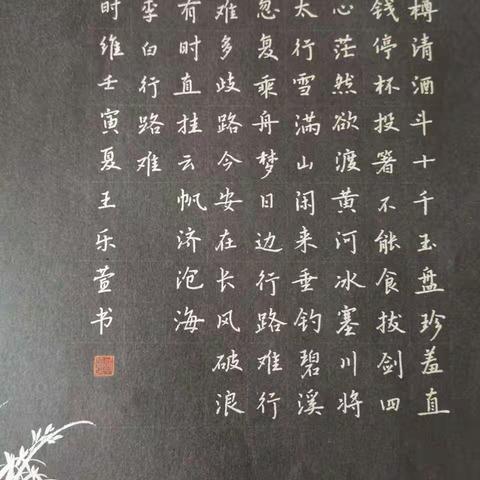 樽清酒斗十千玉盘珍羞直
钱停杯投箸不能食拔剑四
心茫然欲渡黄河冰塞川将
太行雪满山闲来垂钓碧溪
忽复乘舟梦日边行路难行
难多歧路今安在长风破浪
有时直挂云帆济沧海
李白行路难
时维壬寅夏王乐萱书